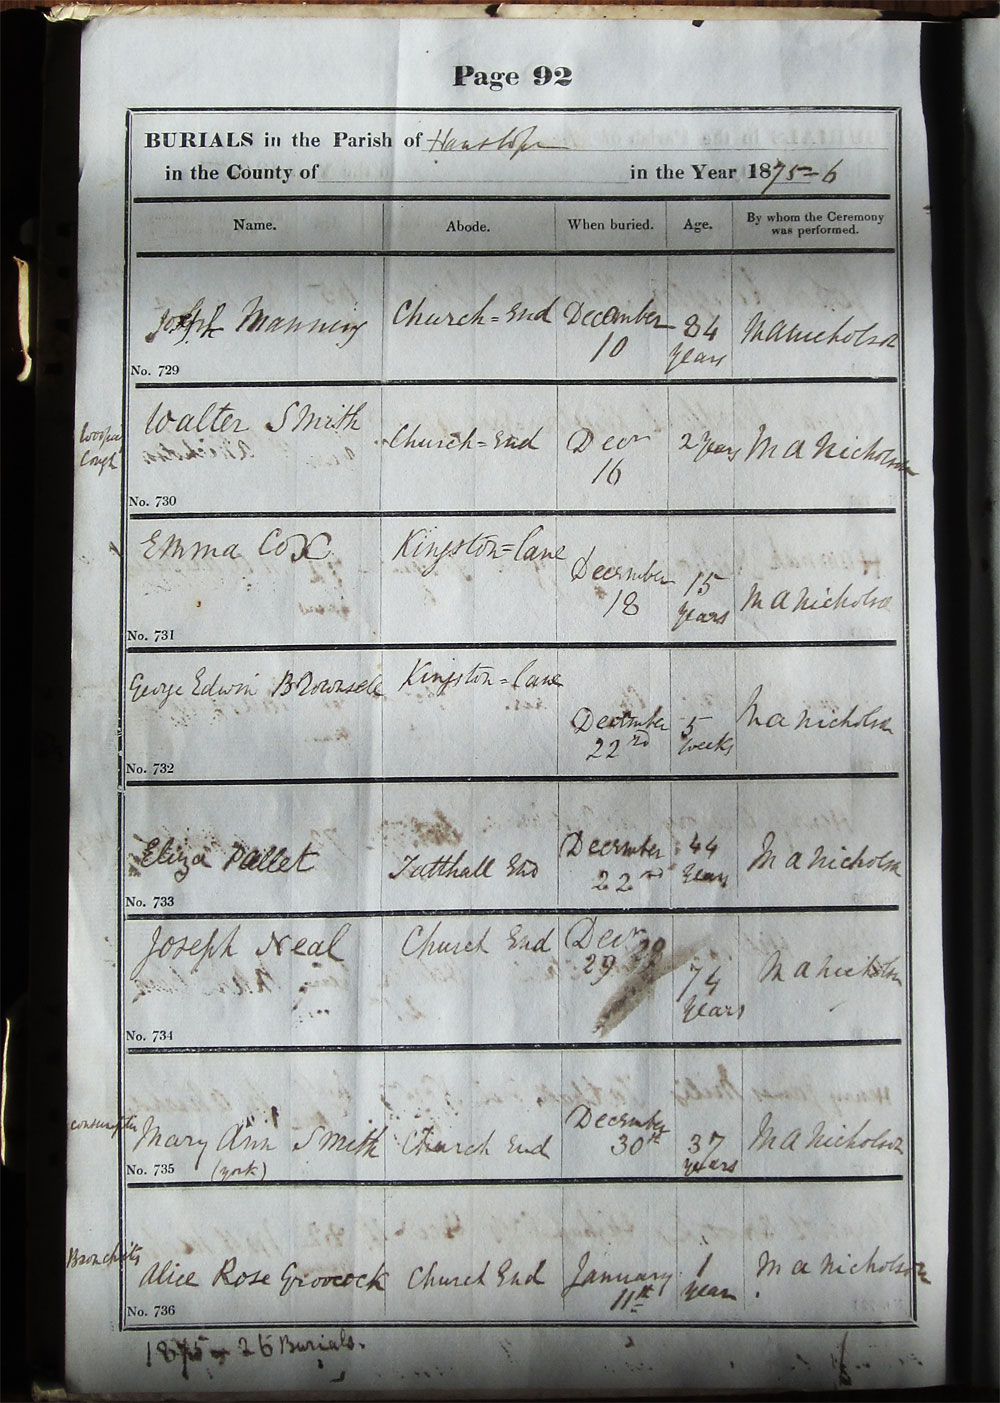 Page 92
BURIALS in the Parish of Hanslope
in the County of in the Year 1875-6
Name. Abode. When buried. Age. By whom the Ceremony
was performed.
Joseph Manning Church=End December 84 M A Nicholson
10 Years
No. 729
Walter Smith
Cough Church=End Decr 2 Years M A Nicholson
16
No. 730
Emma Cox Kingston=Lane
December 15 M A Nicholson
18 Years
No. 731
George Edwin Brownsell Kingston=Lane
December 5 M A Nicholson
22nd Weeks
No. 732
Eliza Pallet Tutthall End December 44 M A Nicholson
22nd Years
No. 733
Joseph Neal Church End Decr
29 74 M A Nicholson
Years
No. 734
December
Mary Ann Smith Church End 30th 37 M A Nicholson
No. 735 (York) Years
Bronchitis Alice Rose Groocock Church End January 1 M A Nicholson
11th Year
No. 736
1875 - 26 Burials.